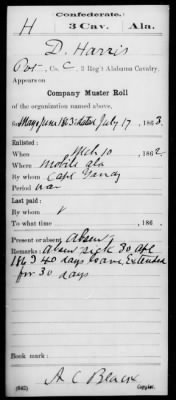 Confederate.
H 3 Cav. Ala.
D. Harris
Pvt, Co. C, 3 Reg't Alabama Cavalry.
Appears on
Company Muster Roll
of the organization named above,
for May & June 1863 dated July 17, 1863.
Enlisted:
When Mch 10, 1862.
Where Mobile Ala
By whom Capt
Period War
Last paid:
By whom
To what time , 186 .
Present or absent Absent
Remarks: Absent sick 30 Apl
1863 40 days leave, Extended
for 30 days
Book mark:
(642) A C
Copyist.